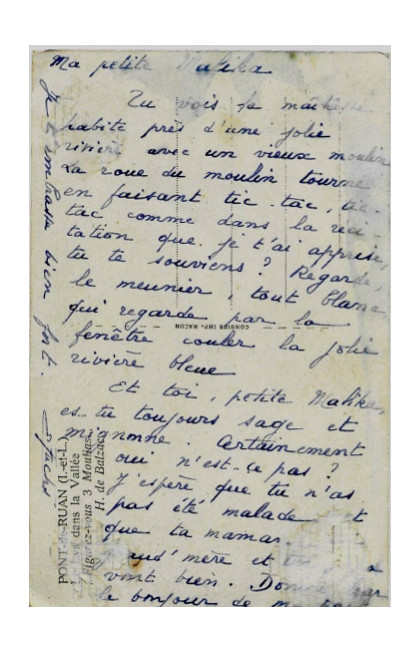 Ma petite Malika
Tu vois ta maîtresse
habite près d'une jolie
rivière avec un vieux moulin
La roue du moulin tourne
en faisant tic-tac, tic-
tac comme dans la réci-
tation que je t'ai apprise,
tu te souviens ? Regarde,
le meunier, tout blanc,
qui regarde par la
fenêtre couler la jolie
rivière bleue
Et toi, petite Malika,
es-tu toujours sage et
mignonne. Certainement
oui n'est-ce pas ?
J'espère que tu n'as
pas été malade et
que ta maman.
mère et
vont bien.
le bonjour de
Je t'embrasse bien fort.
CONSIER IMP. MACON
PONT-de-RUAN (I.-et-L.)
dans la Vallée
Figurez-vous 3 Moulins
H. de Balzac